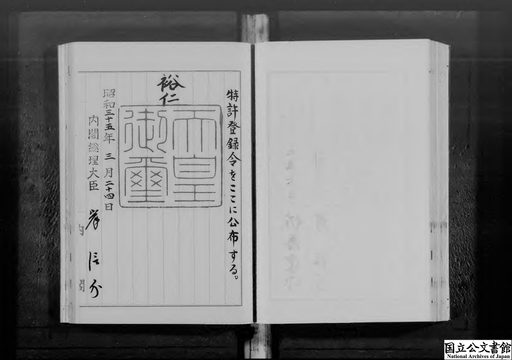 特許登録令をここに公布する。
裕仁
天皇御璽
昭和三十五年三月二十四日
内閣総理大臣 岸信介
内閣
国立公文書館
National Archives of Japan